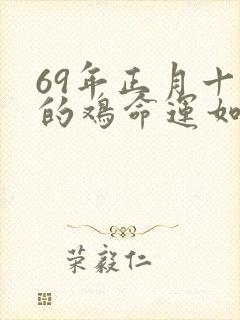 69年正月十
的鸡命运如
荣毅仁